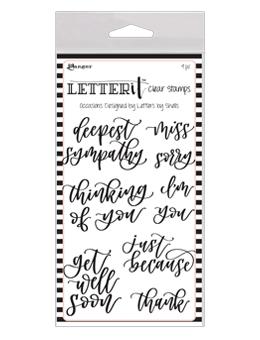 Ranger
9 pc
LETTER it™ clear stamps
Occasions Designed by Letters by Shells
deepest sympathy
miss
sorry
thinking of you
I'm
you
get well soon
just because
thank